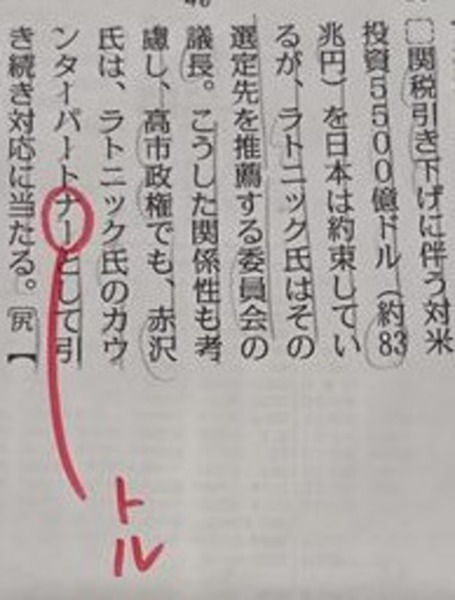 関税引き下げに伴う対米
投資5500億ドル（約83
兆円）を日本は約束してい
るが、ラトニック氏はその
選定先を推薦する委員会の
議長。こうした関係性も考
慮し、高市政権でも、赤沢
氏は、ラトニック氏のカウ
ンターパートナーとして引
き続き対応に当たる。
トル